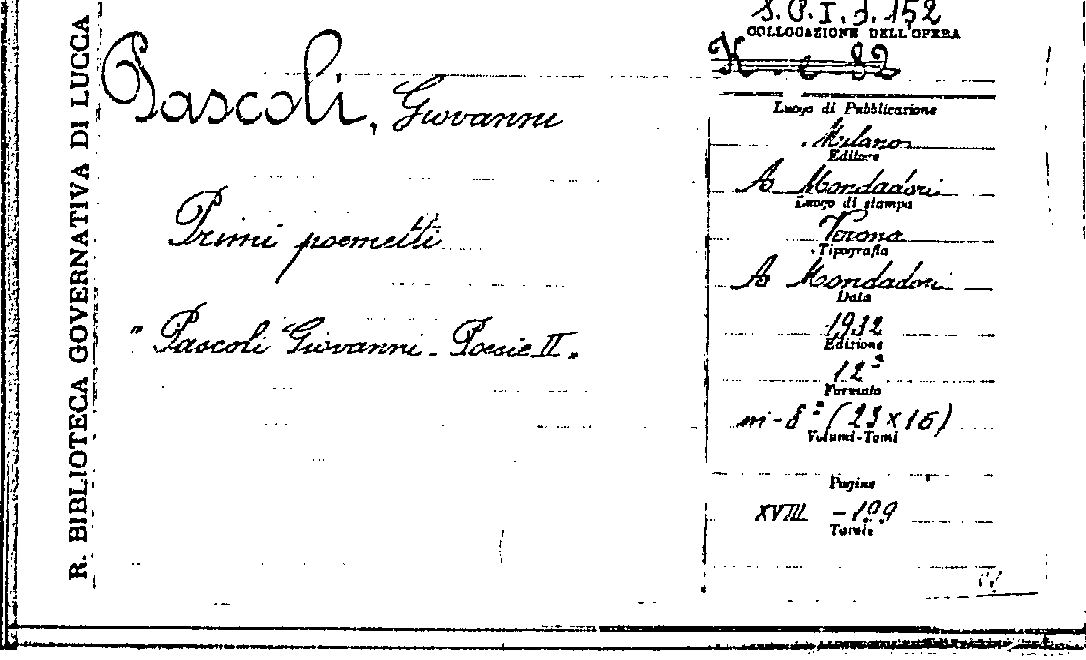 R. BIBLIOTECA GOVERNATIVA DI LUCCA
Pascoli, Giovanni
Primi poemetti
" Pascoli Giovanni - Poesie II "
S.P.I.d.152
COLLOCAZIONE DELL'OPERA
Luogo di Pubblicazione
Milano
Editore
A Mondadori
Luogo di stampa
Verona
Tipografia
A Mondadori
Data
1932
Edizione
12ª
Formato
in-8° (23x16)
Volumi-Tomi
Pagine
XVIII - 199
Tavole